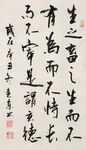 生之畜之生而不
有為而不恃長
而不宰是謂玄德